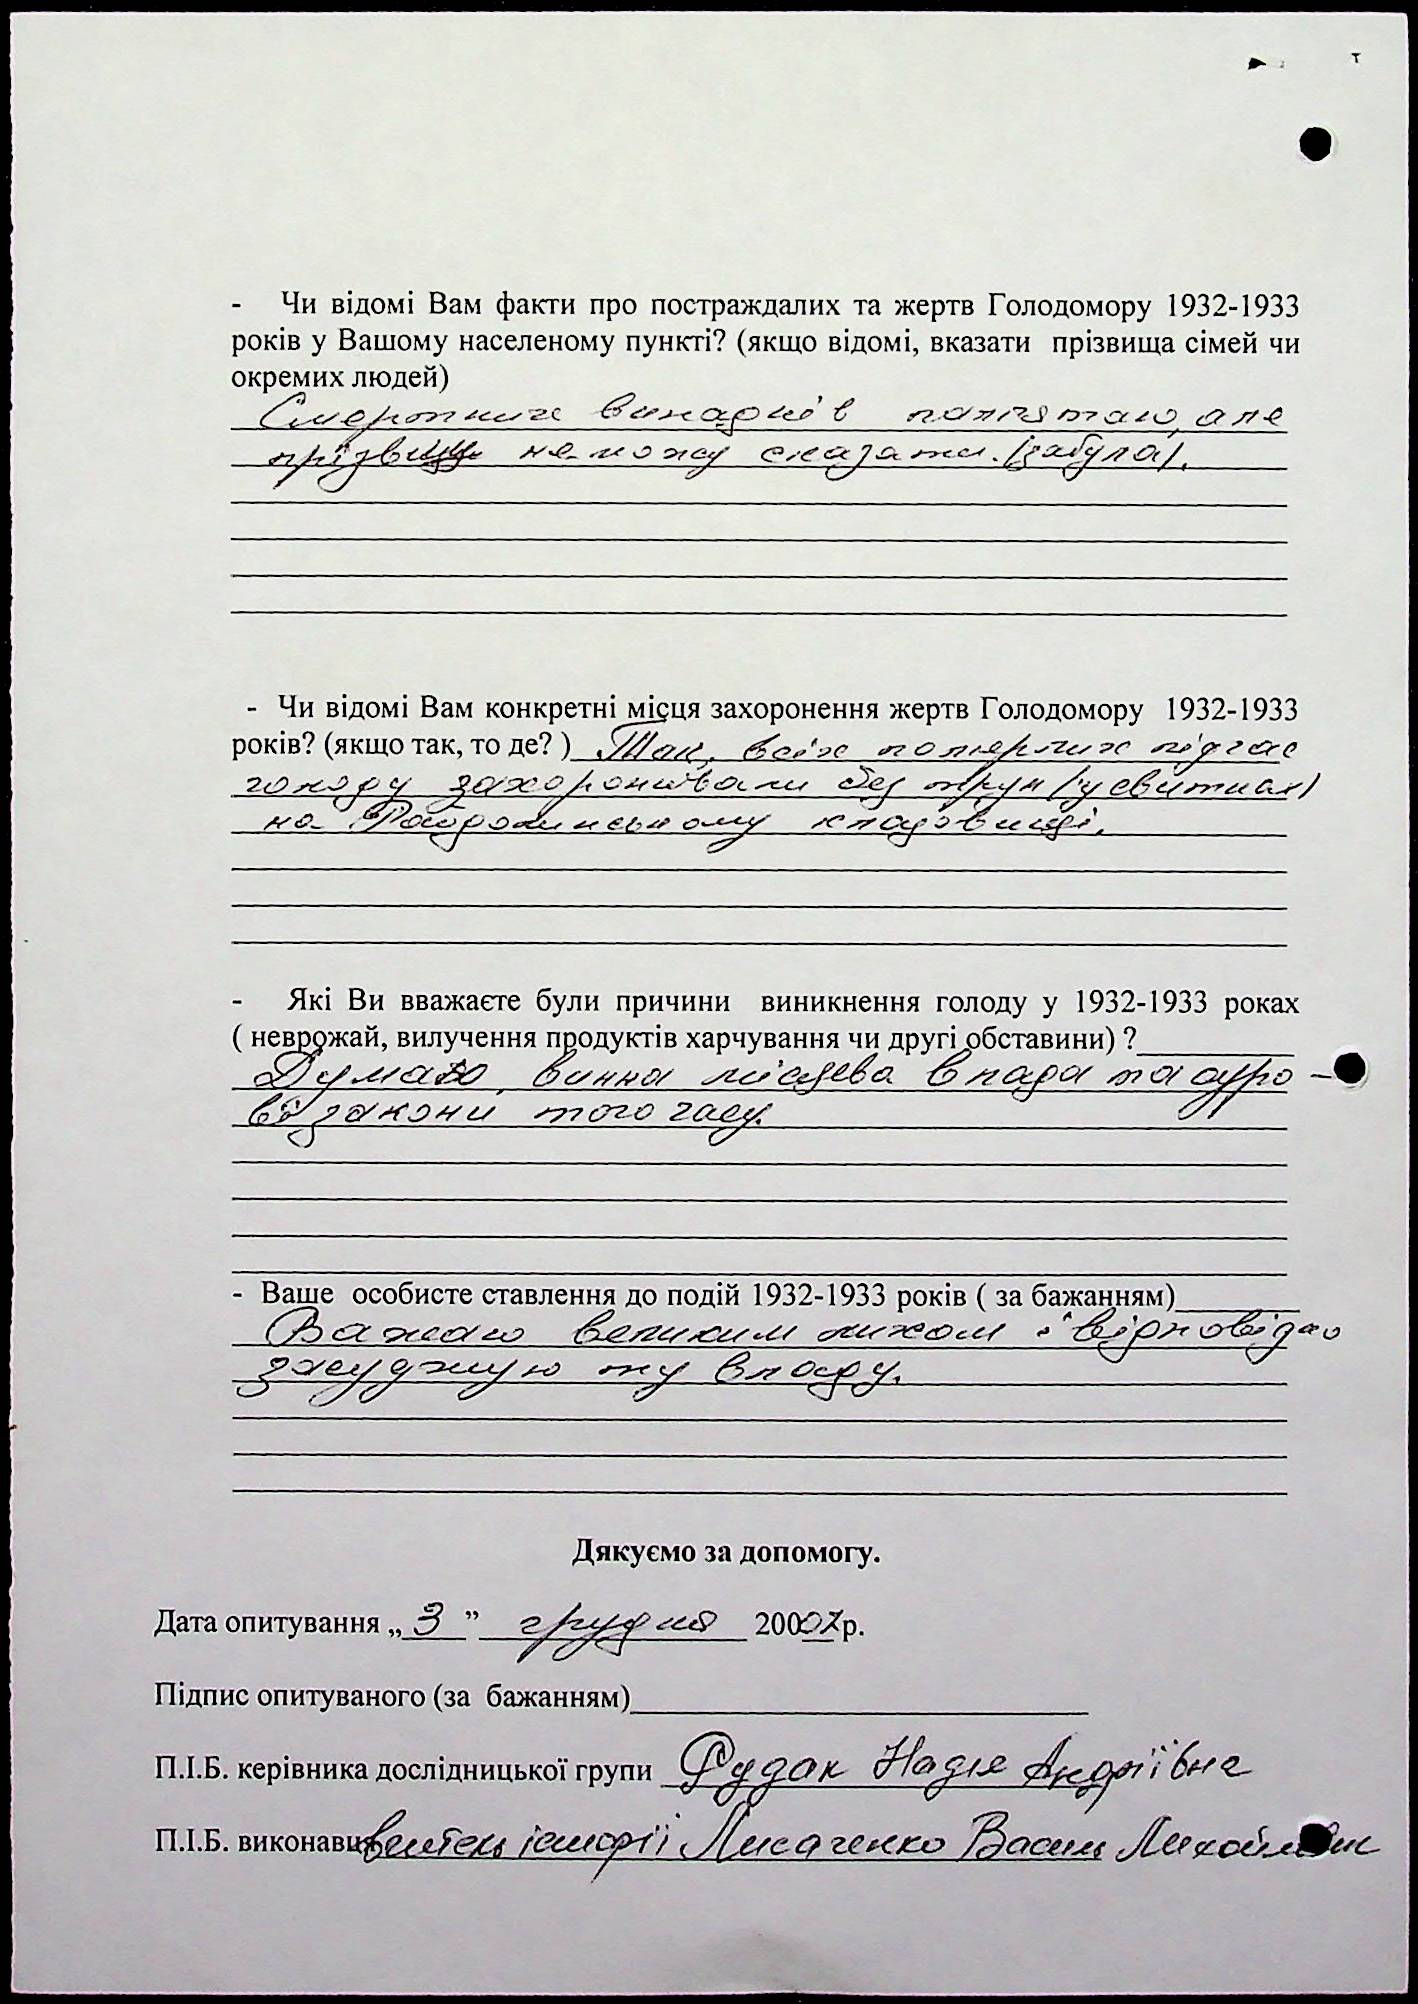 - Чи відомі Вам факти про постраждалих та жертв Голодомору 1932-1933
років у Вашому населеному пункті? (якщо відомі, вказати прізвища сімей чи
окремих людей)
Смертних випадків пам'ятаю, але
прізвищ не можу сказати. (забула).
- Чи відомі Вам конкретні місця захоронення жертв Голодомору 1932-1933
років? (якщо так, то де? ) Так, всіх померлих під час
голоду захоронювали без трун (у свитках)
на кладовищі.
- Які Ви вважаєте були причини виникнення голоду у 1932-1933 роках
( неврожай, вилучення продуктів харчування чи другі обставини) ?
Думаю, винна місцева влада та суро-
ві закони того часу.
- Ваше особисте ставлення до подій 1932-1933 років ( за бажанням)
Вважаю великим лихом і відповідно
засуджую ту владу.
Дякуємо за допомогу.
Дата опитування „ 3 ” грудня 20007р.
Підпис опитуваного (за бажанням)
П.І.Б. керівника дослідницької групи Рудак Надія Андріївна
П.І.Б. виконавця вчитель історії Лисаченко Василь Михайлович